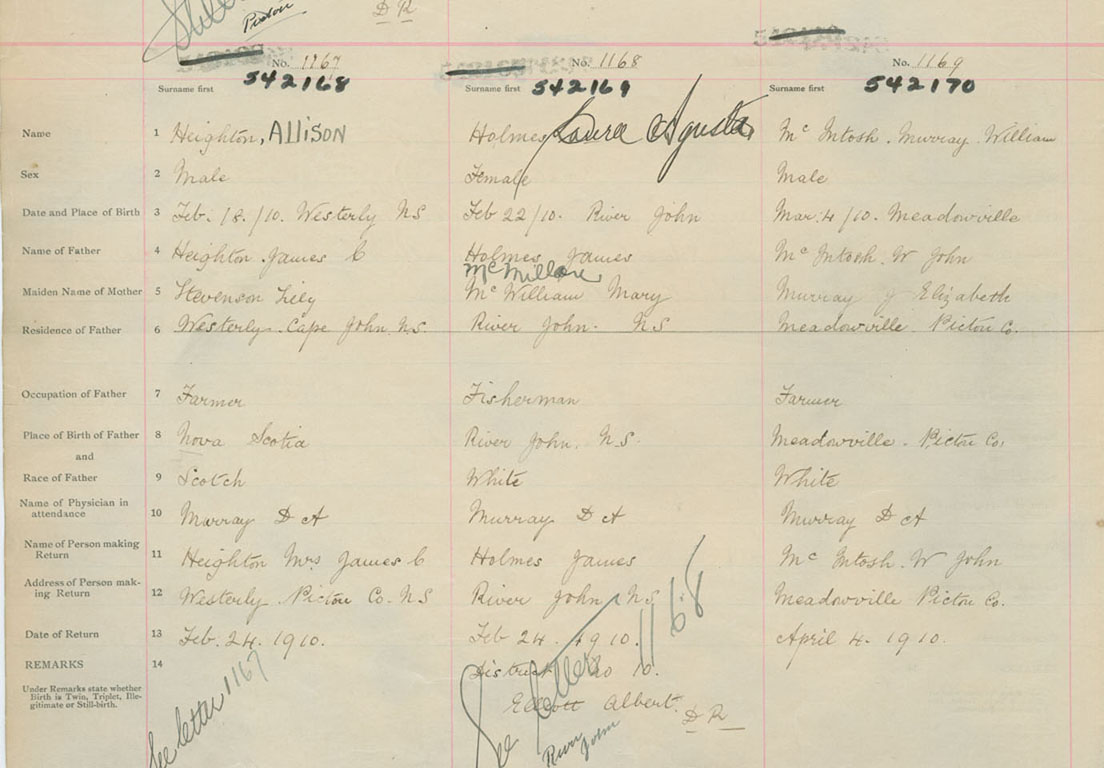 Pictou
D R
No. 1167 No. 1168 No. 1169
542168 542169 542170
Surname first Surname first Surname first
Name 1 Heighton, ALLISON Holmes Laura Agusta Mc Intosh. Murray William
Sex 2 Male Female Male
Date and Place of Birth 3 Feb. 18./10. Westerly NS Feb 22/10. River John Mar. 4/10. Meadowville
Name of Father 4 Heighton. James C Holmes James Mc Intosh. W John
McMillan
Maiden Name of Mother 5 Stevenson Lily Mc William Mary Murray J Elizabeth
Residence of Father 6 Westerly. Cape John. N.S. River John. NS Meadowville. Pictou Co.
Occupation of Father 7 Farmer Fisherman Farmer
Place of Birth of Father 8 Nova Scotia River John. N.S. Meadowville. Pictou Co.
and
Race of Father 9 Scotch White White
Name of Physician in attendance 10 Murray D A Murray D A Murray D A
Name of Person making Return 11 Heighton Mrs James C Holmes James Mc Intosh. W John
Address of Person mak-ing Return 12 Westerly. Pictou Co. NS River John NS Meadowville Pictou Co.
Date of Return 13 Feb. 24. 1910. Feb 24. 1910. April 4. 1910.
REMARKS 14 District No 10.
Under Remarks state whether
Birth is Twin, Triplet, Ille-
gitimate or Still-birth.
Elliott Albert. D R
See letter 1167
See letter 1168
River John